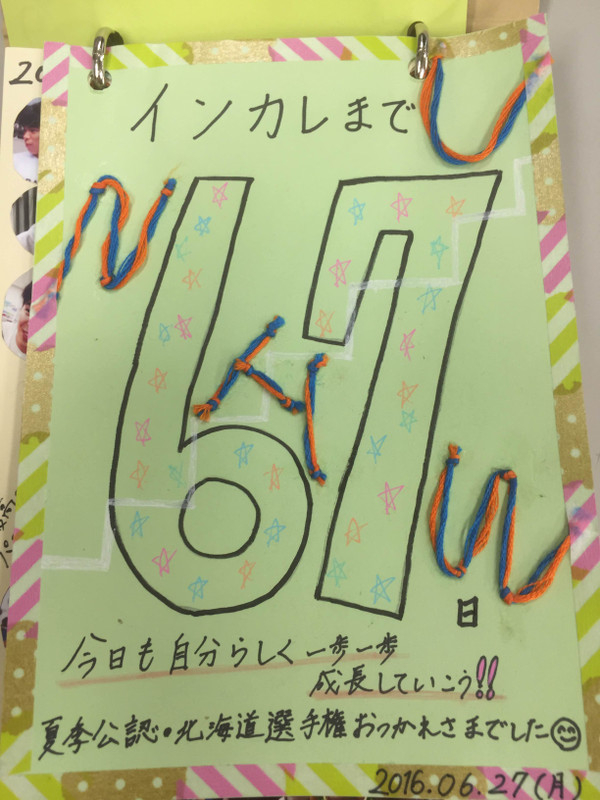 インカレまで
67
日
今日も自分らしく一歩一歩
成長していこう!!
夏季公認・北海道選手権おつかれさまでした
2016.06.27(月)